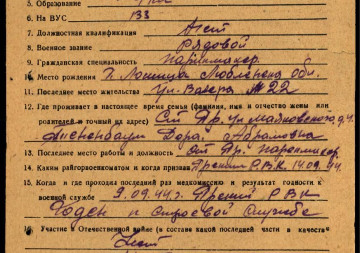 5. Образование
6. На ВУС 133
7. Должностная квалификация
8. Военное звание Рядовой
9. Гражданская специальность парикмахер
10. Место рождения Любленска обл.
11. Последнее место жительства ул. № 22
12. Где проживает в настоящее время семья (фамилия, имя и отчество жены или
родителей и точный их адрес) ул. Маяковского
Дора Абрамовна
13. Последнее место работы и должность парикмахер
14. Каким райгорвоенкоматом и когда призван Р.В.К. 14.09.44
15. Когда и где проходил последний раз медкомиссию и результат годности к
военской службе 9.09.44 г. Р В К
Годен к строевой службе
16. Участие в Отечественной войне (в составе какой последней части в качеств
Нет